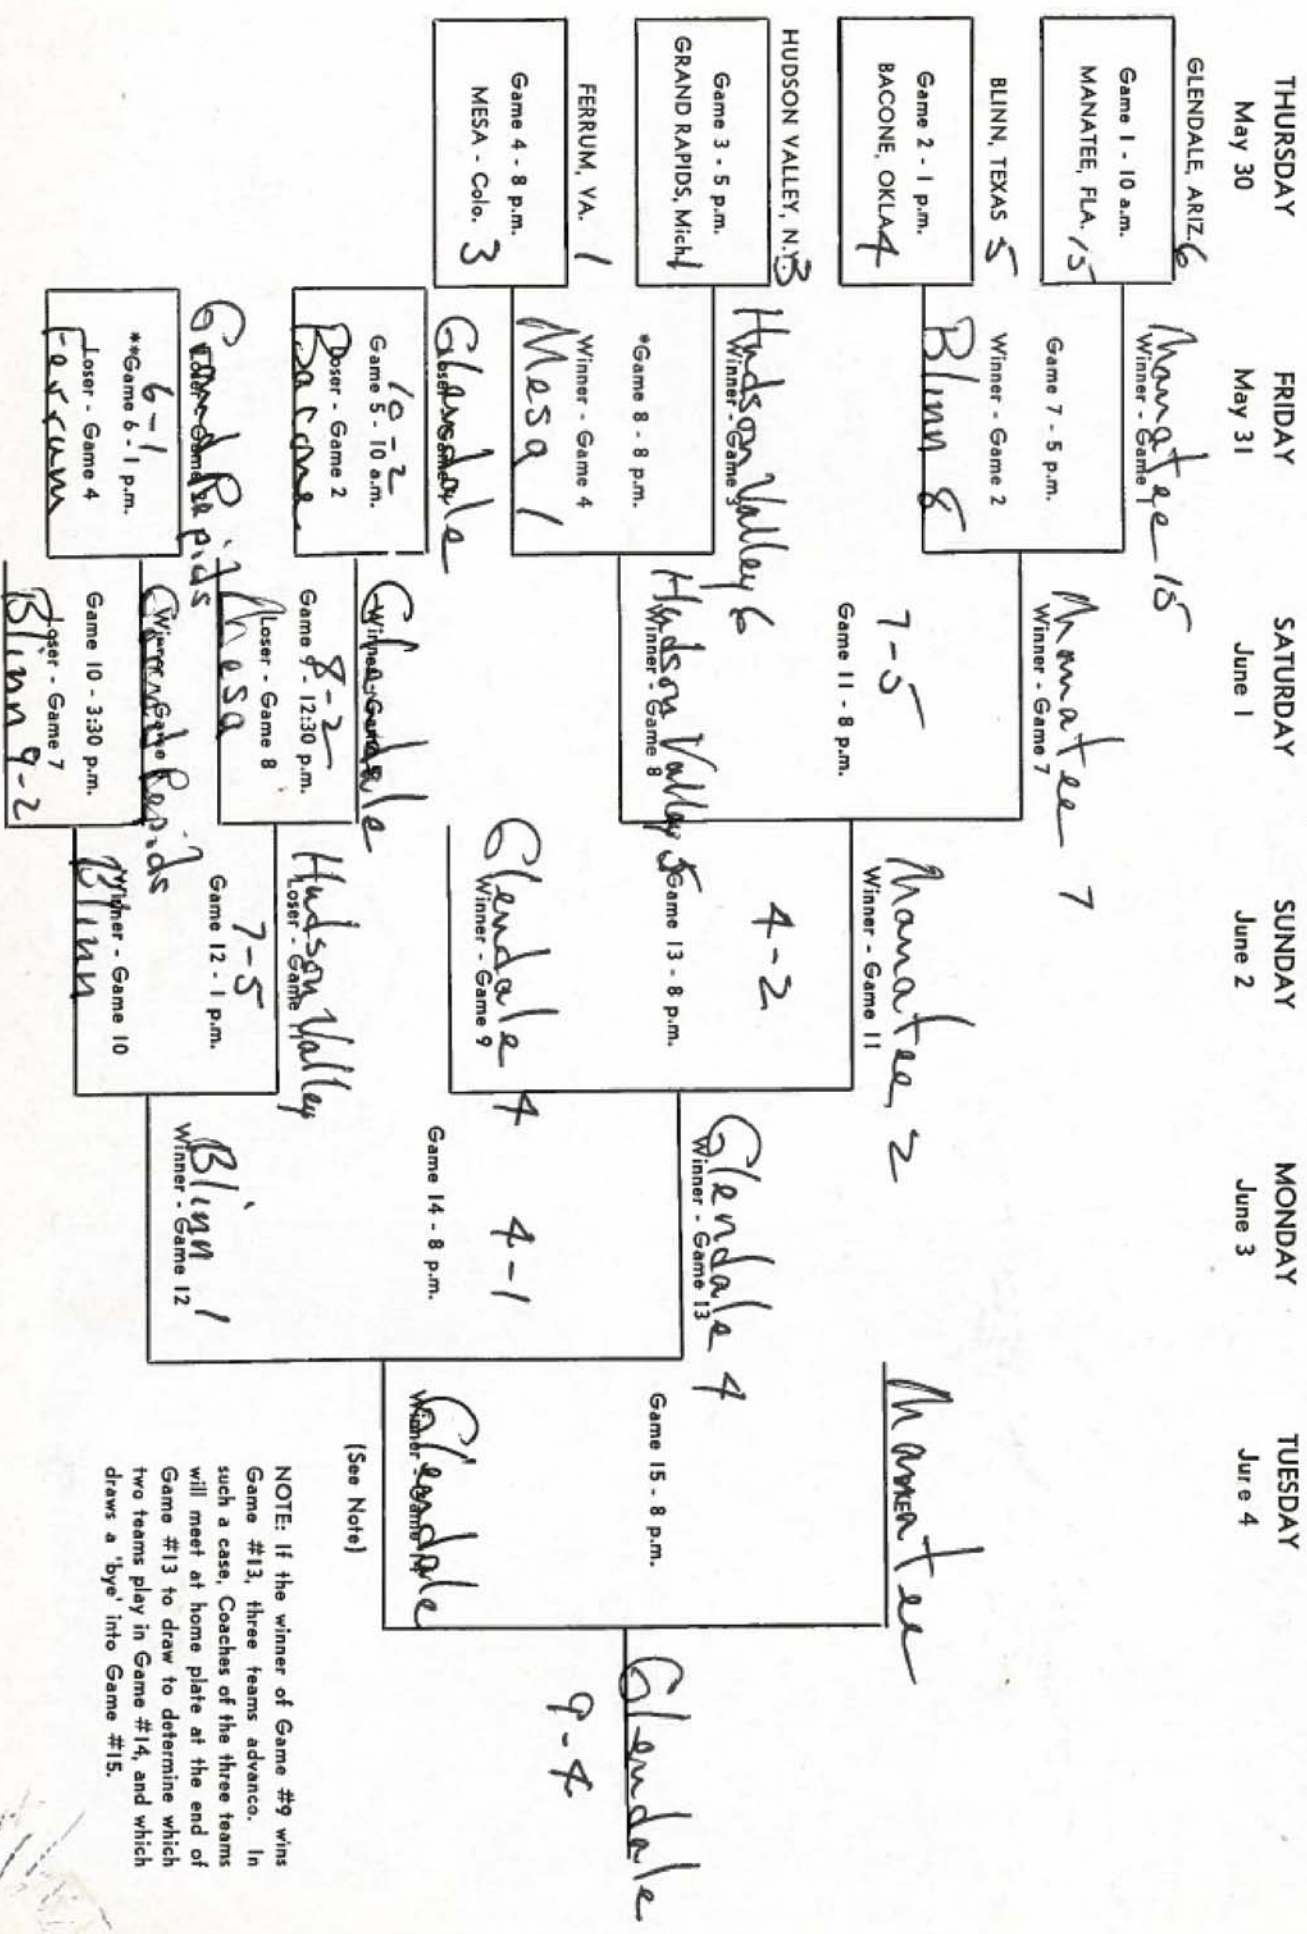 THURSDAY
May 30
FRIDAY
May 31
SATURDAY
June 1
SUNDAY
June 2
MONDAY
June 3
TUESDAY
Jure 4
GLENDALE, ARIZ. 6
Game 1 - 10 a.m.
MANATEE, FLA. 15
BLINN, TEXAS 5
Game 2 - 1 p.m.
BACONE, OKLA 4
HUDSON VALLEY, N.Y. 3
Game 3 - 5 p.m.
GRAND RAPIDS, Mich. 1
FERRUM, VA. 1
Game 4 - 8 p.m.
MESA - Colo. 3
Manatee 15
Winner - Game 1
Game 7 - 5 p.m.
Winner - Game 2
Blinn 8
Hudson Valley 6
Winner - Game 3
*Game 8 - 8 p.m.
Winner - Game 4
Mesa 1
Glendale
10-2
Game 5 - 10 a.m.
Loser - Game 2
Bacone
Grand Rapids
6-1
**Game 6 - 1 p.m.
Loser - Game 4
Ferrum
Manatee 7
Winner - Game 7
7-5
Game 11 - 8 p.m.
Hudson Valley 5
Winner - Game 8
Glendale
8-2
Game 9 - 12:30 p.m.
Loser - Game 8
Mesa
Grand Rapids
Game 10 - 3:30 p.m.
Loser - Game 7
Blinn 9-2
Manatee 2
Winner - Game 11
4-2
Game 13 - 8 p.m.
Glendale 4
Winner - Game 9
Hudson Valley
Loser - Game 11
7-5
Game 12 - 1 p.m.
Winner - Game 10
Blinn
Glendale 4
Winner - Game 13
4-1
Game 14 - 8 p.m.
Blinn 1
Winner - Game 12
Manatee
Game 15 - 8 p.m.
Glendale
(See Note)
Glendale
9-4
NOTE: If the winner of Game #9 wins
Game #13, three teams advance. In
such a case, Coaches of the three teams
will meet at home plate at the end of
Game #13 to draw to determine which
two teams play in Game #14, and which
draws a 'bye' into Game #15.